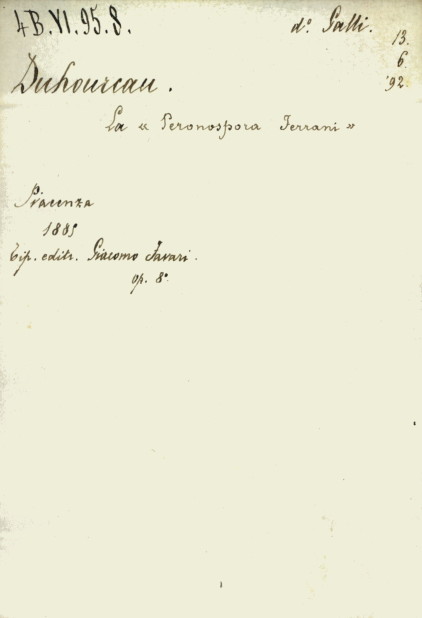 4 B. VI. 95. 8.
dº Galli.
13.
6
'92.
Duhourcau.
La « Peronospora Ferrani »
Piacenza
1885
Tip. edit. Giacomo Favari.
op. 8º